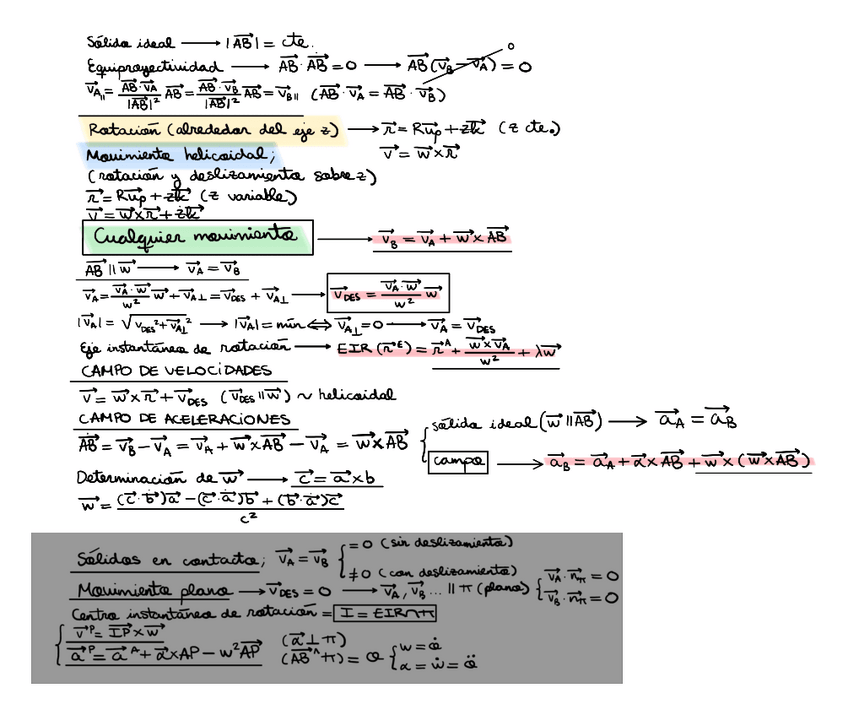 Sólido ideal → |AB⃗| = cte.
Equiproyectividad → AB⃗ · AB⃗ = 0 → AB⃗ (v⃗_B − v⃗_A)⁰ = 0
v⃗_A∥ = (AB⃗ · v⃗_A / |AB⃗|²) AB⃗ = (AB⃗ · v⃗_B / |AB⃗|²) AB⃗ = v⃗_B∥ (AB⃗ · v⃗_A = AB⃗ · v⃗_B)
Rotación (alrededor del eje z) → r⃗ = Ru⃗ρ + zk⃗ (z cte.)
v⃗ = w⃗ × r⃗
Movimiento helicoidal;
(rotación y deslizamiento sobre z)
r⃗ = Ru⃗ρ + zk⃗ (z variable)
v⃗ = w⃗ × r⃗ + żk⃗
Cualquier movimiento → v⃗_B = v⃗_A + w⃗ × AB⃗
AB⃗ ∥ w⃗ → v⃗_A = v⃗_B
v⃗_A = (v⃗_A · w⃗ / w²) w⃗ + v⃗_A⊥ = v⃗_DES + v⃗_A⊥ → v⃗_DES = (v⃗_A · w⃗ / w²) w⃗
|v⃗_A| = √(v_DES² + v⃗_A⊥²) → |v⃗_A| = mín ⟺ v⃗_A⊥ = 0 → v⃗_A = v⃗_DES
Eje instantáneo de rotación → EIR (r⃗ᴱ) = r⃗ᴬ + (w⃗ × v⃗_A / w²) + λw⃗
CAMPO DE VELOCIDADES
v⃗ = w⃗ × r⃗ + v⃗_DES (v⃗_DES ∥ w⃗) ~ helicoidal
CAMPO DE ACELERACIONES
AB⃗ = v⃗_B − v⃗_A = v⃗_A + w⃗ × AB⃗ − v⃗_A = w⃗ × AB⃗
{ sólido ideal (w⃗ ∥ AB⃗) → a⃗_A = a⃗_B
campo → a⃗_B = a⃗_A + α⃗ × AB⃗ + w⃗ × (w⃗ × AB⃗)
Determinación de w⃗ → c⃗ = a⃗ × b
w⃗ = ((c⃗ · b⃗)a⃗ − (c⃗ · a⃗)b⃗ + (b⃗ · a⃗)c⃗) / c²
Sólidos en contacto; v⃗_A = v⃗_B { = 0 (sin deslizamiento)
≠ 0 (con deslizamiento)
Movimiento plano → v⃗_DES = 0 → v⃗_A, v⃗_B ... ∥ π (plano) { v⃗_A · n⃗_π = 0
v⃗_B · n⃗_π = 0
Centro instantáneo de rotación = I = EIR ∩ π
{ v⃗ᴾ = IP⃗ × w⃗
a⃗ᴾ = a⃗ᴬ + α⃗ × AP − w² AP⃗
(α⃗ ⊥ π)
(AB⃗ ^ π) = θ { w = θ̇
α = ẇ = θ̈